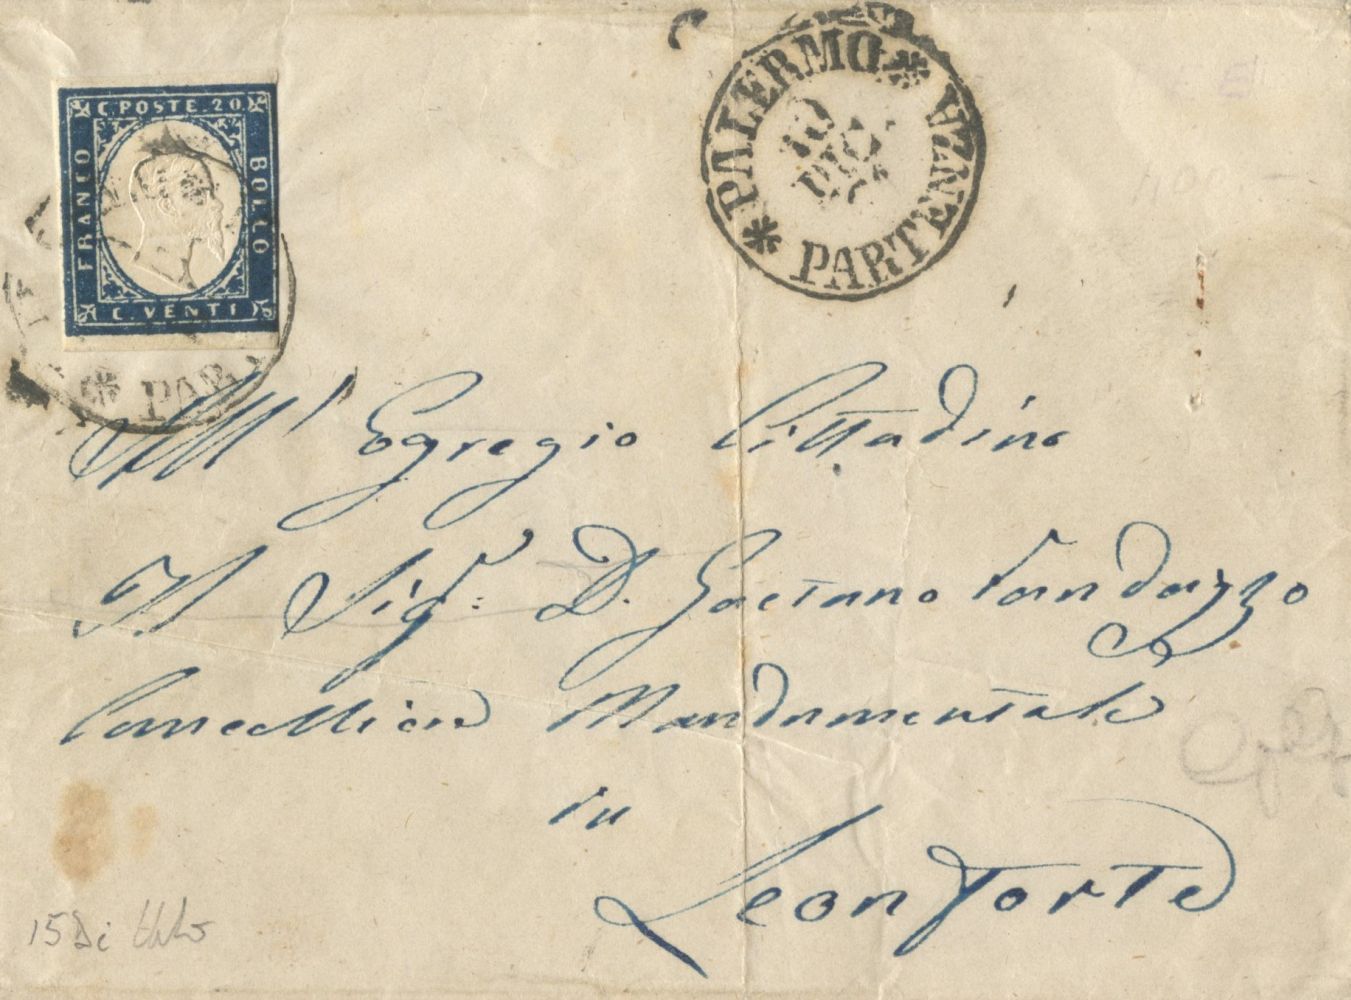 C. POSTE. 20.
FRANCO
BOLLO
C. VENTI
* PAR
* PALERMO *
PARTENZA
10
DIC
All' Egregio Cittadino
Il Sig.r D. Gaetano
Cancelliere Mandamentale
in
Leonforte